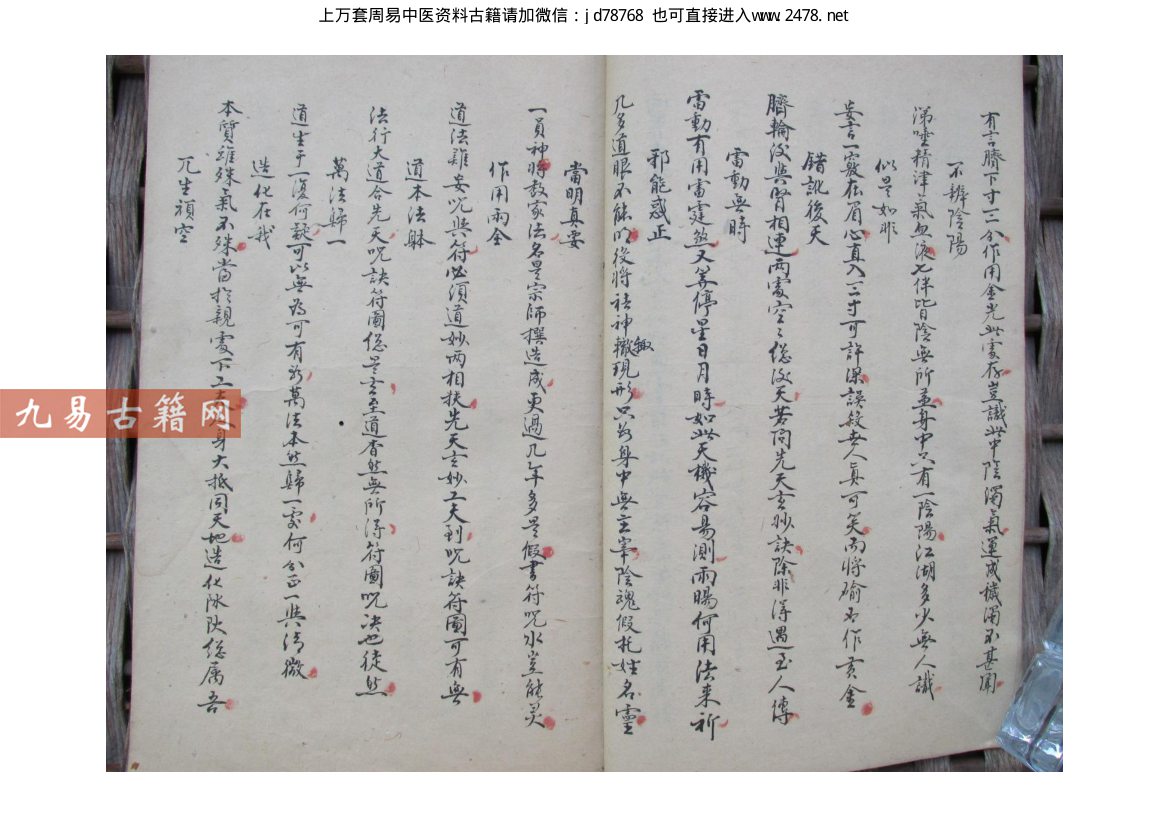 上万套周易中医资料古籍请加微信：jd78768 也可直接进入www.2478.net
有言臍下寸二三分作用金光此處存豈識此中陰濁氣運成穢濁不甚聞
不辨陰陽
涕唾精津氣血液七件皆陰無所並身中只有一陰陽江湖多少無人識
似是如非
妄言一竅在眉心直入三寸可許深誤殺世人真可笑尚將鍮石作黃金
錯訛後天
臍輪後與腎相連兩處空空總後天若問先天玄妙訣除非得遇至人傳
雷動無時
雷動有用雷霆煞又等停星日月時如此天機容易測雨暘何用法來祈
邪能惑正
几多道眼不能明役將祛神轍現形只為身中無主宰陰魂假托姓名靈
趣
當明真妄
一員神將数家法名是宗師撰造成更過几年多是假書符呪水豈能灵
作用兩全
道法難妄呪與符必須道妙两相扶先天玄妙工夫到呪訣符圖可有無
道本法躰
法行大道合先天呪訣符圖總是言至道杳然無所得符圖呪决也徒然
萬法歸一
道生于一復何疑可以無為可有為萬法本然歸一處何分正一與清微
造化在我
本質雖殊氣不殊當於親處下工夫身大抵同天地造化
總属吾
頑空
九易古籍网